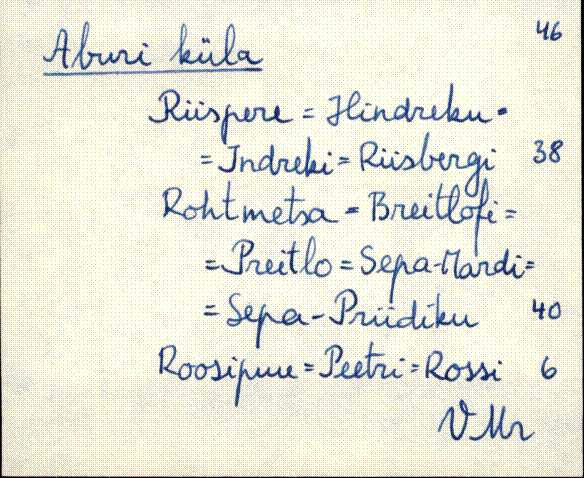 46
Aburi küla
Riispere = Hindreku =
= Indreki = Riisbergi 38
Rohtmetsa = Breitlofi =
= Preitlo = Sepa-Mardi =
= Sepa-Priidiku 40
Roosipuu = Peetri = Rossi 6
VMr